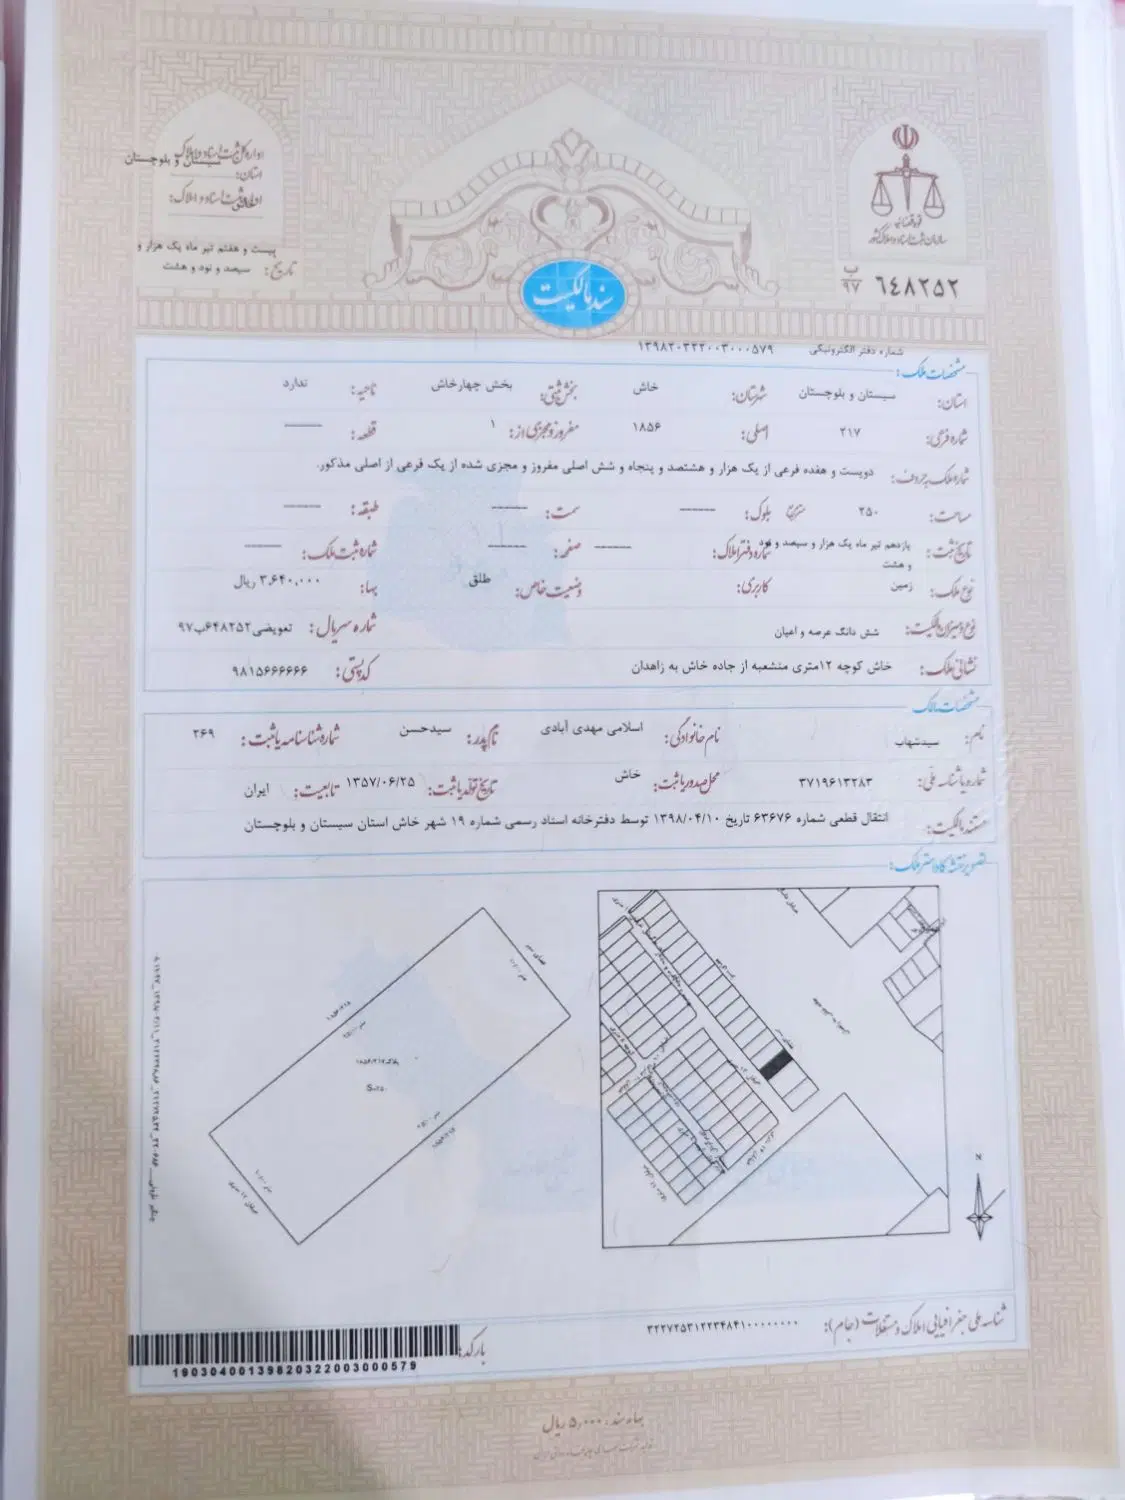 قوه قضائیه
سازمان ثبت اسناد و املاک کشور
۶۴۸۲۵۲ ب ۹۷
اداره کل ثبت اسناد و املاک
استان: سیستان و بلوچستان
اداره ثبت اسناد و املاک:
تاریخ: بیست و هفتم تیر ماه یک هزار و
سیصد و نود و هشت
سند مالکیت
شماره دفتر الکترونیکی ۱۳۹۸۲۰۳۲۲۰۰۳۰۰۰۵۷۹
مشخصات ملک:
استان: سیستان و بلوچستان شهرستان: خاش بخش ثبتی: بخش چهارخاش ناحیه: ندارد
شماره فرعی: ۲۱۷ اصلی: ۱۸۵۶ مفروز و مجزی از: ۱ قطعه: ------
شماره ملک به حروف: دویست و هفده فرعی از یک هزار و هشتصد و پنجاه و شش اصلی مفروز و مجزی شده از یک فرعی از اصلی مذکور.
مساحت: ۲۵۰ مترمربع بلوک: ------ سمت: ------ طبقه: ------
تاریخ ثبت: یازدهم تیر ماه یک هزار و سیصد و نود شماره دفتر املاک: ------ صفحه: ------ شماره ثبت ملک: ------
و هشت
نوع ملک: زمین کاربری: وضعیت خاص: طلق بهاء: ۳,۶۴۰,۰۰۰ ریال
نوع و میزان مالکیت: شش دانگ عرصه و اعیان شماره سریال: تعویضی۶۴۸۲۵۲ب۹۷
نشانی ملک: خاش کوچه ۱۲متری منشعبه از جاده خاش به زاهدان کد پستی: ۹۸۱۵۶۶۶۶۶۶
مشخصات مالک
نام: سیدشهاب نام خانوادگی: اسلامی مهدی آبادی نام پدر: سیدحسن شماره شناسنامه یا ثبت: ۲۶۹
شماره یا شناسه ملی: ۳۷۱۹۶۱۳۲۸۳ محل صدور یا ثبت: خاش تاریخ تولد یا ثبت: ۱۳۵۷/۰۶/۲۵ تابعیت: ایران
مستند مالکیت: انتقال قطعی شماره ۶۳۶۷۶ تاریخ ۱۳۹۸/۰۴/۱۰ توسط دفترخانه اسناد رسمی شماره ۱۹ شهر خاش استان سیستان و بلوچستان
تصویر نقشه کاداستر ملک:
فضای سبز
۱۸۵۶/۲۱۸
پلاک:۱۸۵۶/۲۱۷
S=۲۵۰
N
شناسه ملی جغرافیایی املاک و مستغلات (جام): ۳۲۲۷۲۵۳۱۲۲۳۴۸۴۱۰۰۰۰۰۰۰۰
بارکد:
190304001398203220030005​79
بهاء سند: ۵,۰۰۰ ریال